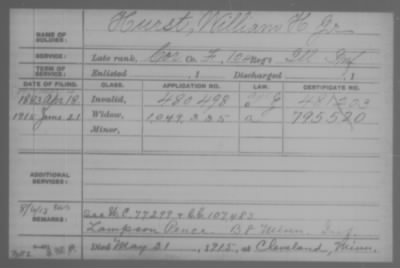 NAME OF SOLDIER: Hurst, William H. Jr.
SERVICE: Late rank, Cor Co. F, 124 Reg't Ill Inf
TERM OF SERVICE: Enlisted , 1 Discharged , 1
DATE OF FILING. CLASS. APPLICATION NO. LAW. CERTIFICATE NO.
1883 Apr 19. Invalid, 480 498 G 481203
1915 June 21 Widow, 1049 335 a 795520
Minor,
ADDITIONAL SERVICES:
REMARKS: See W.C. 77299 + C.C. 107,483
Lampson Pence B 8 Minn. Inf.
Died May 21, 1915, at Cleveland, Minn.